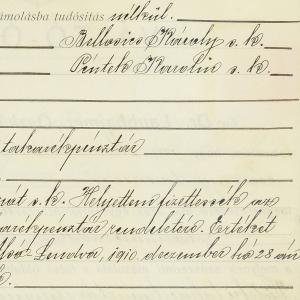 ámolásba tudósítás nélkül.
Bellovics Károly s. k.
Péntek Karolin s. k.
takarékpénztár
s. k. Helyettem fizettessék az
arékpénztár rendeletére. Értékét
Alsó Lendva, 1910 deczember hó 28 án
k.